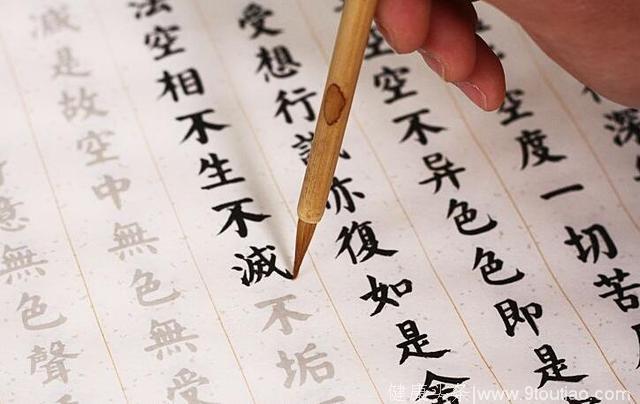 深
空度一切苦
空空不异色色即是
受想行識亦復如是舍
法空相不生不滅不垢
滅是故空中無色無受
意無色聲
健康头条|www.9toutiao.com